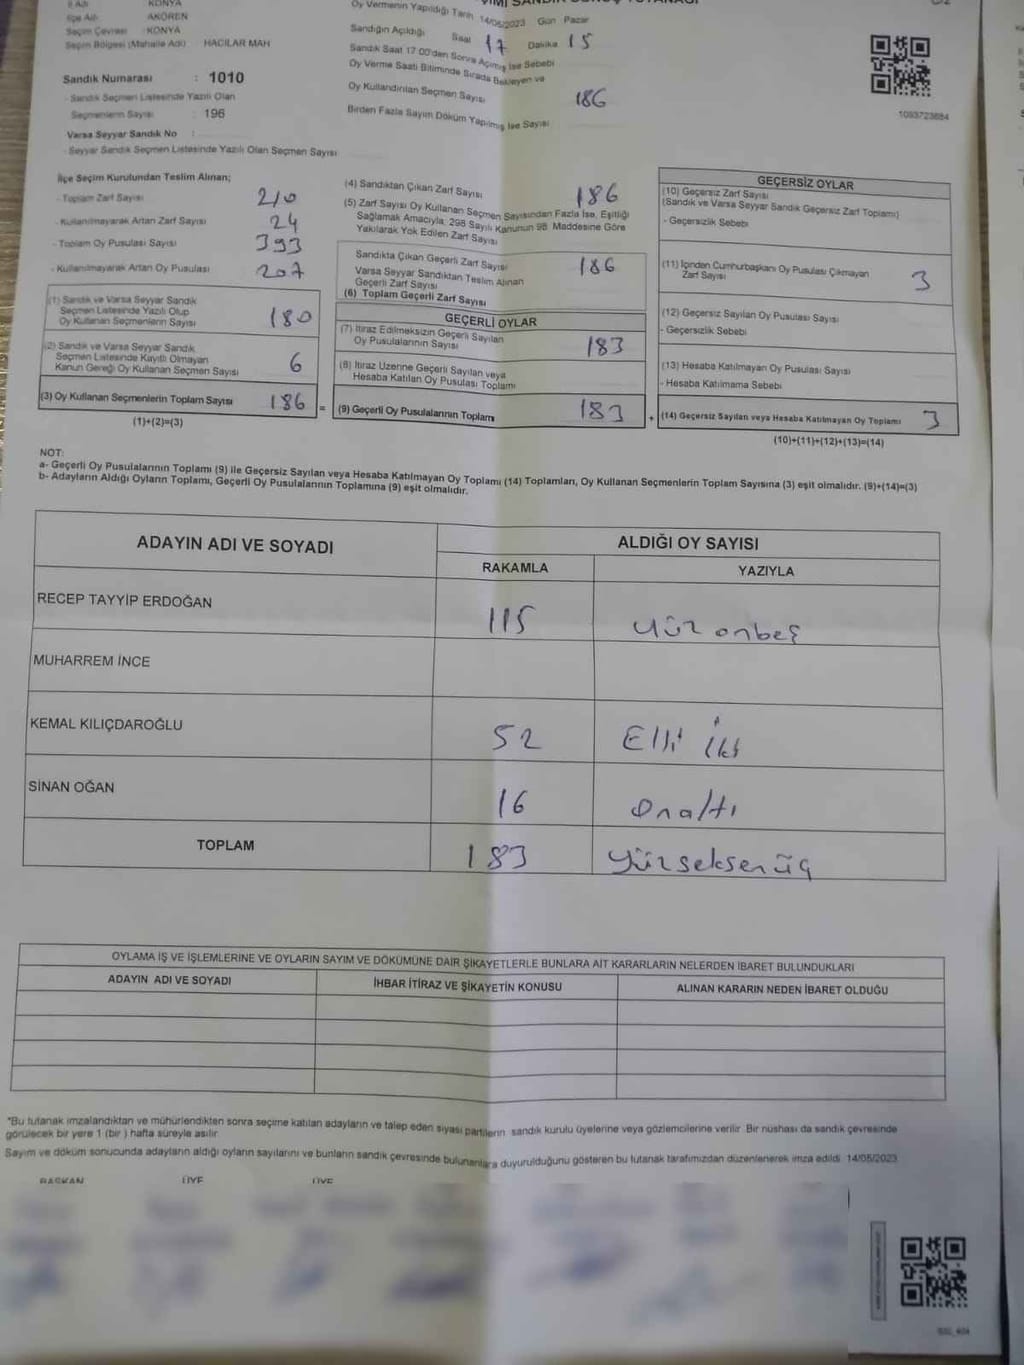 İl Adı : KONYA
İlçe Adı : AKÖREN
Seçim Çevresi : KONYA
Seçim Bölgesi (Mahalle Adı) : HACILAR MAH
Sandık Numarası : 1010
- Sandık Seçmen Listesinde Yazılı Olan
Seçmenlerin Sayısı : 196
Varsa Seyyar Sandık No :
- Seyyar Sandık Seçmen Listesinde Yazılı Olan Seçmen Sayısı
Oy Vermenin Yapıldığı Tarih 14/05/2023 Gün Pazar
Sandığın Açıldığı Saat 17 Dakika 15
Sandık Saat 17:00'den Sonra Açılmış İse Sebebi
Oy Verme Saati Bitiminde Sırada Bekleyen ve
Oy Kullandırılan Seçmen Sayısı 186
Birden Fazla Sayım Döküm Yapılmış İse Sayısı
1053723684
İlçe Seçim Kurulundan Teslim Alınan;
- Toplam Zarf Sayısı 210
- Kullanılmayarak Artan Zarf Sayısı 24
- Toplam Oy Pusulası Sayısı 393
- Kullanılmayarak Artan Oy Pusulası 207
(1) Sandık ve Varsa Seyyar Sandık
Seçmen Listesinde Yazılı Olup
Oy Kullanan Seçmenlerin Sayısı 180
(2) Sandık ve Varsa Seyyar Sandık
Seçmen Listesinde Kayıtlı Olmayan
Kanun Gereği Oy Kullanan Seçmen Sayısı 6
(3) Oy Kullanan Seçmenlerin Toplam Sayısı 186 =
(1)+(2)=(3)
(4) Sandıktan Çıkan Zarf Sayısı 186
(5) Zarf Sayısı Oy Kullanan Seçmen Sayısından Fazla İse, Eşitliği
Sağlamak Amacıyla, 298 Sayılı Kanunun 98. Maddesine Göre
Yakılarak Yok Edilen Zarf Sayısı
Sandıkta Çıkan Geçerli Zarf Sayısı 186
Varsa Seyyar Sandıktan Teslim Alınan
Geçerli Zarf Sayısı
(6) Toplam Geçerli Zarf Sayısı
GEÇERLİ OYLAR
(7) İtiraz Edilmeksizin Geçerli Sayılan
Oy Pusulalarının Sayısı 183
(8) İtiraz Üzerine Geçerli Sayılan veya
Hesaba Katılan Oy Pusulası Toplamı
(9) Geçerli Oy Pusulalarının Toplamı 183 +
GEÇERSİZ OYLAR
(10) Geçersiz Zarf Sayısı
(Sandık ve Varsa Seyyar Sandık Geçersiz Zarf Toplamı)
- Geçersizlik Sebebi
(11) İçinden Cumhurbaşkanı Oy Pusulası Çıkmayan
Zarf Sayısı 3
(12) Geçersiz Sayılan Oy Pusulası Sayısı
- Geçersizlik Sebebi
(13) Hesaba Katılmayan Oy Pusulası Sayısı
- Hesaba Katılmama Sebebi
(14) Geçersiz Sayılan veya Hesaba Katılmayan Oy Toplamı 3
(10)+(11)+(12)+(13)=(14)
NOT:
a- Geçerli Oy Pusulalarının Toplamı (9) ile Geçersiz Sayılan veya Hesaba Katılmayan Oy Toplamı (14) Toplamları, Oy Kullanan Seçmenlerin Toplam Sayısına (3) eşit olmalıdır. (9)+(14)=(3)
b- Adayların Aldığı Oyların Toplamı, Geçerli Oy Pusulalarının Toplamına (9) eşit olmalıdır.
ADAYIN ADI VE SOYADI
ALDIĞI OY SAYISI
RAKAMLA YAZIYLA
RECEP TAYYİP ERDOĞAN 115 Yüz onbeş
MUHARREM İNCE
KEMAL KILIÇDAROĞLU 52 Elli İki
SİNAN OĞAN 16 Onaltı
TOPLAM 183 Yüzseksenüç
OYLAMA İŞ VE İŞLEMLERİNE VE OYLARIN SAYIM VE DÖKÜMÜNE DAİR ŞİKAYETLERLE BUNLARA AİT KARARLARIN NELERDEN İBARET BULUNDUKLARI
ADAYIN ADI VE SOYADI İHBAR İTİRAZ VE ŞİKAYETİN KONUSU ALINAN KARARIN NEDEN İBARET OLDUĞU
*Bu tutanak imzalandıktan ve mühürlendikten sonra seçime katılan adayların ve talep eden siyasi partilerin sandık kurulu üyelerine veya gözlemcilerine verilir. Bir nüshası da sandık çevresinde
görülecek bir yere 1 (bir ) hafta süreyle asılır.
Sayım ve döküm sonucunda adayların aldığı oyların sayılarını ve bunların sandık çevresinde bulunanlara duyurulduğunu gösteren bu tutanak tarafımızdan düzenlenerek imza edildi. 14/05/2023
BAŞKAN ÜYE ÜYE